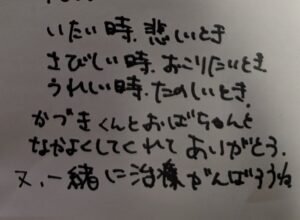 いたい時、悲しいとき
さびしい時、おこりたいとき、
うれしい時、たのしいとき、
かづきくんとおばちゃんと
なかよくしてくれてありがとう.
又、一緒に治療がんばろうね